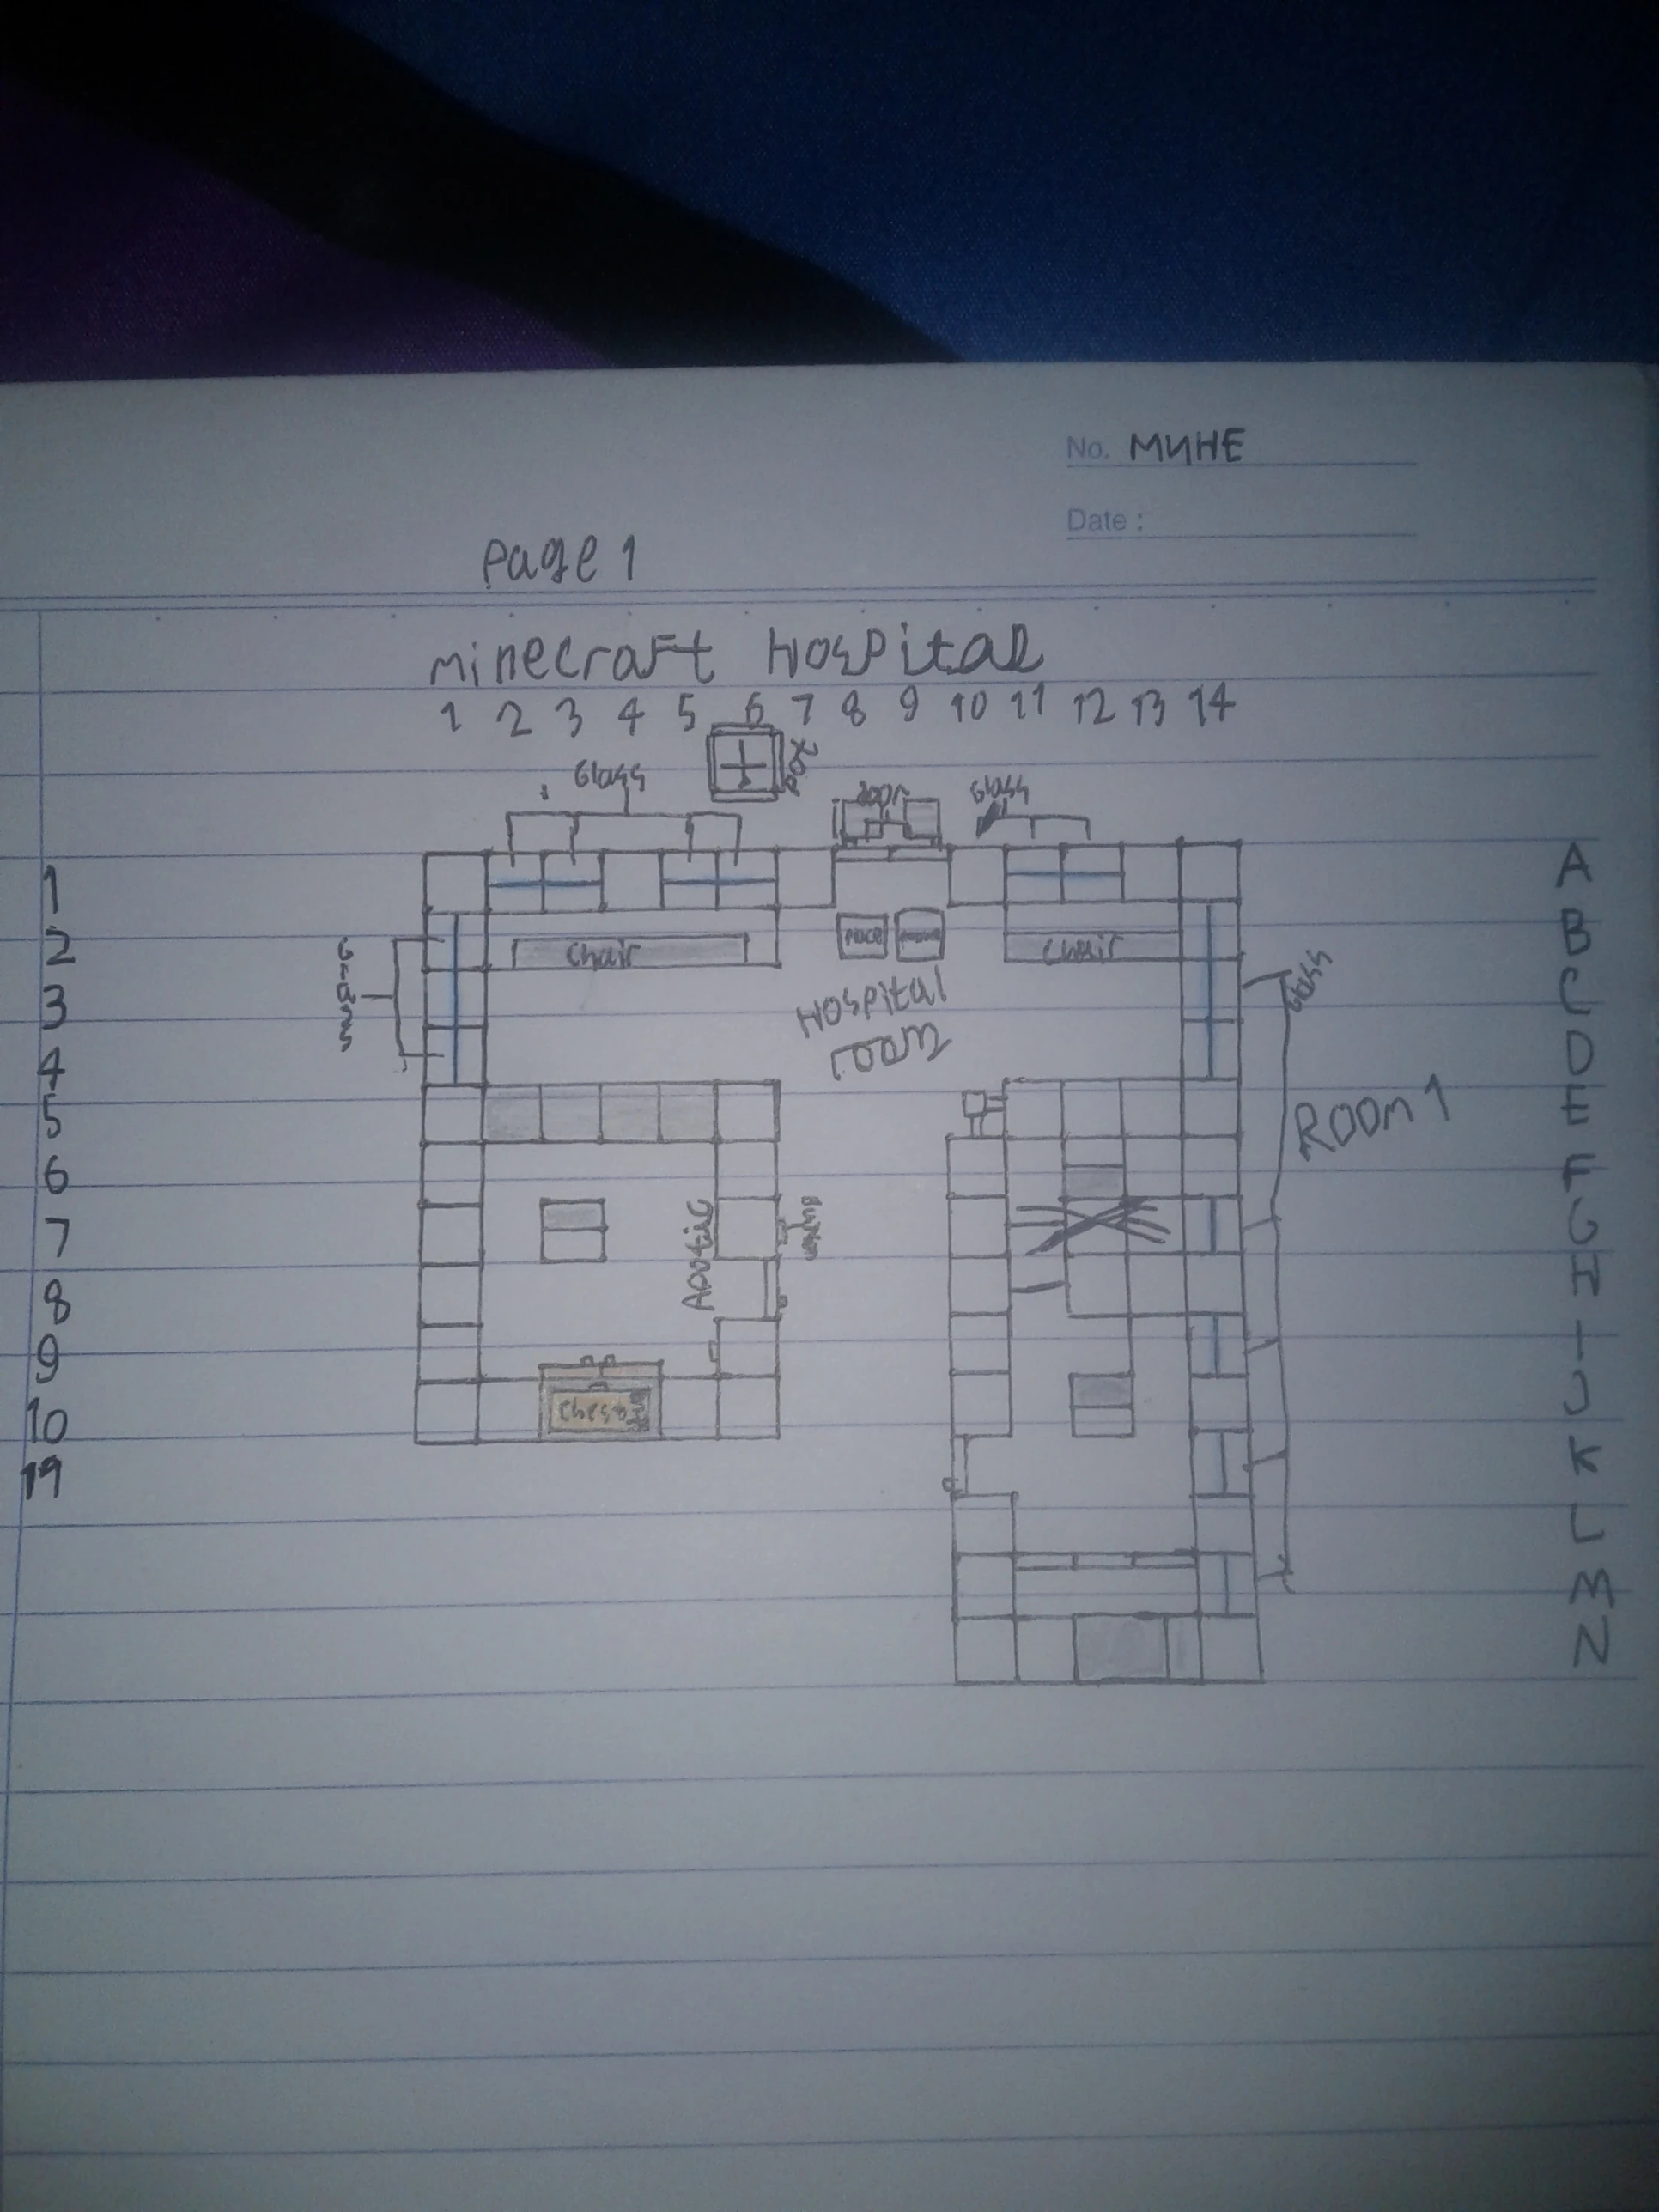 No. MYHE
Date :
Page 1
minecraft Hospital
1 2 3 4 5 6 7 8 9 10 11 12 13 14
Glass
Door
Glass
1
A
2
Chair
Chair
B
Glass
Glass
3
Hospital
room
C
4
D
5
E
ROOM 1
6
F
7
Apotic
Button
G
8
H
9
I
10
Chest
J
19
K
L
M
N